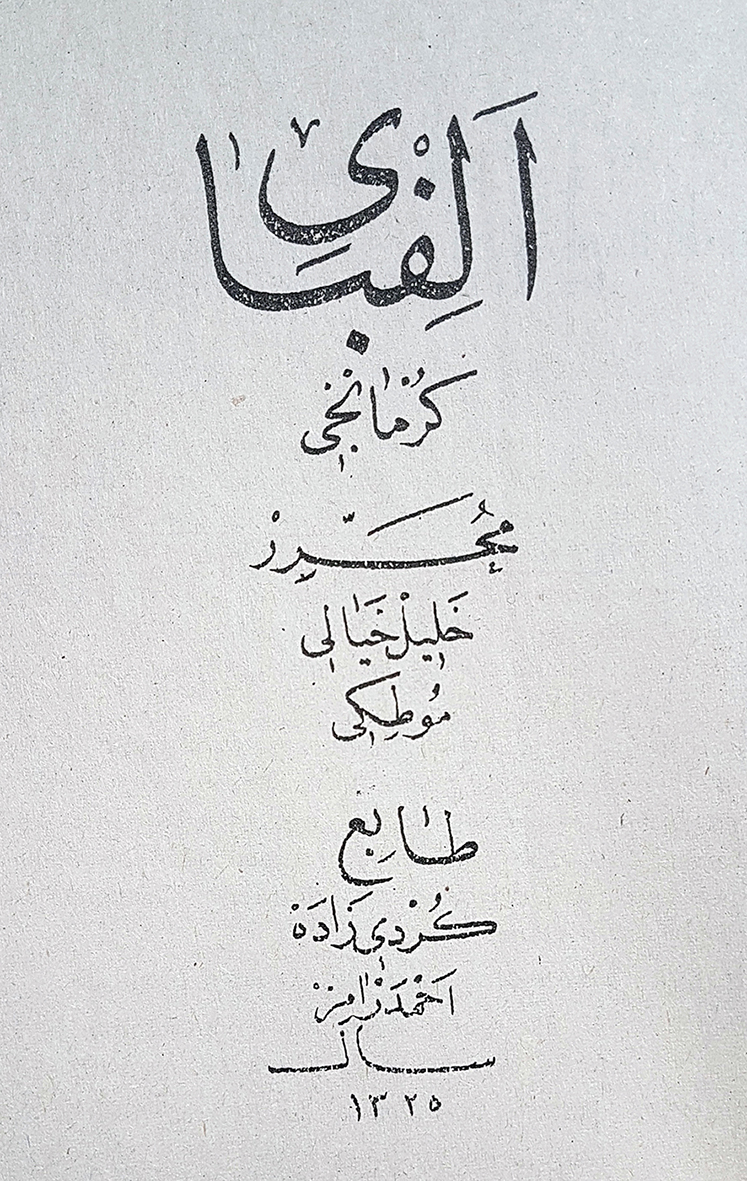 اَلِفْبَایٔ
کُرْمانْجِی
مُحَرِّرْ
خَلِیلْ خَیَالِی
مُوطِکِی
طَابِعْ
کُرْدِی زَادَهْ
اَحْمَدْ رَامِزْ
سال
١٣٢٥